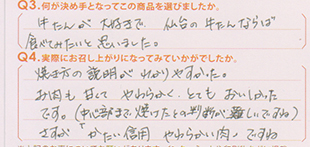 Q3.何が決め手となってこの商品を選びましたか。
牛たんが大好きで、仙台の牛たんならば
食べてみたいと思いました。
Q4.実際にお召し上がりになってみていかがでしたか。
焼き方の説明がわかりやすかった。
お肉も甘くて やわらかく、とても おいしかった
です。(中心部まで焼けたとの判断が難しいですね)
さすが かたい信用 やわらかい肉 ですね